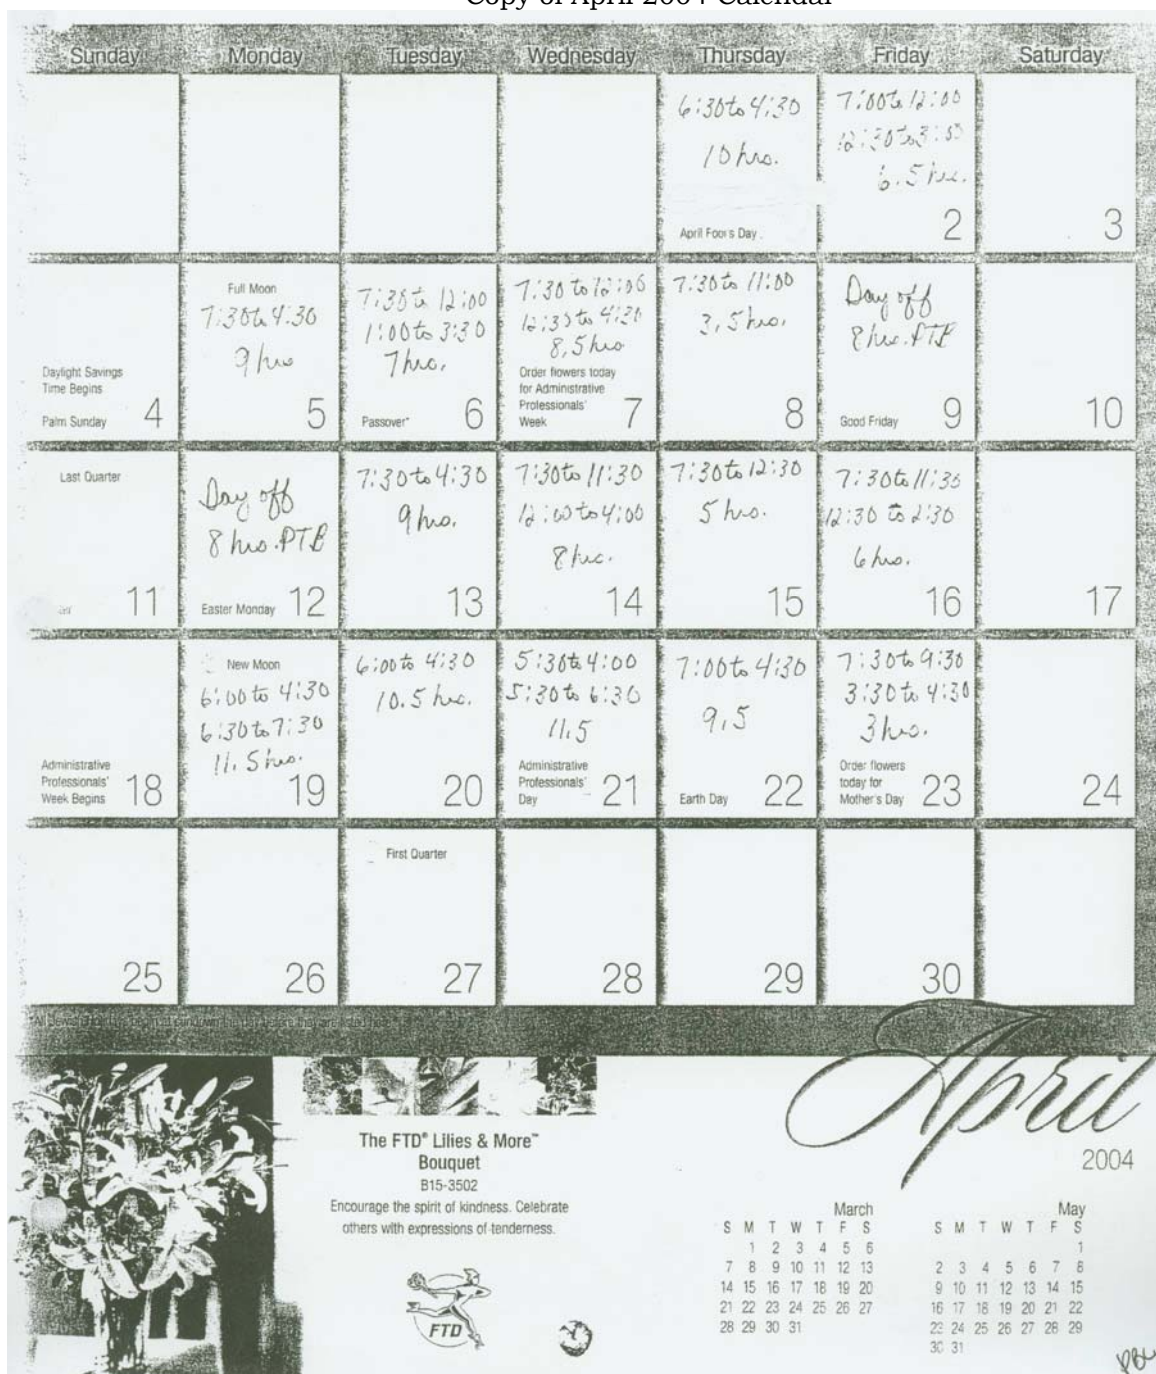 Copy of April 2004 Calendar
Sunday Monday Tuesday Wednesday Thursday Friday Saturday
6:30 to 4:30
10 hrs.
April Fool's Day
7:00 to 12:00
12:30 to 3:00
6.5 hrs.
2
3
Daylight Savings
Time Begins
Palm Sunday
4
Full Moon
7:30 to 4:30
9 hrs
5
7:30 to 12:00
1:00 to 3:30
7 hrs.
Passover*
6
7:30 to 12:00
12:30 to 4:30
8.5 hrs
Order flowers today
for Administrative
Professionals'
Week
7
7:30 to 11:00
3.5 hrs.
8
Day off
8 hrs. PTB
Good Friday
9
10
Last Quarter
11
Day off
8 hrs. PTB
Easter Monday
12
7:30 to 4:30
9 hrs.
13
7:30 to 11:30
12:00 to 4:00
8 hrs.
14
7:30 to 12:30
5 hrs.
15
7:30 to 11:30
12:30 to 2:30
6 hrs.
16
17
Administrative
Professionals'
Week Begins
18
New Moon
6:00 to 4:30
6:30 to 7:30
11.5 hrs.
19
6:00 to 4:30
10.5 hrs.
20
5:30 to 4:00
5:30 to 6:30
11.5
Administrative
Professionals'
Day
21
7:00 to 4:30
9.5
Earth Day
22
7:30 to 9:30
3:30 to 4:30
3 hrs.
Order flowers
today for
Mother's Day
23
24
25
26
First Quarter
27
28
29
30
April
2004
The FTD® Lilies & More™
Bouquet
B15-3502
Encourage the spirit of kindness. Celebrate
others with expressions of tenderness.
FTD
March
S M T W T F S
1 2 3 4 5 6
7 8 9 10 11 12 13
14 15 16 17 18 19 20
21 22 23 24 25 26 27
28 29 30 31
May
S M T W T F S
1
2 3 4 5 6 7 8
9 10 11 12 13 14 15
16 17 18 19 20 21 22
23 24 25 26 27 28 29
30 31